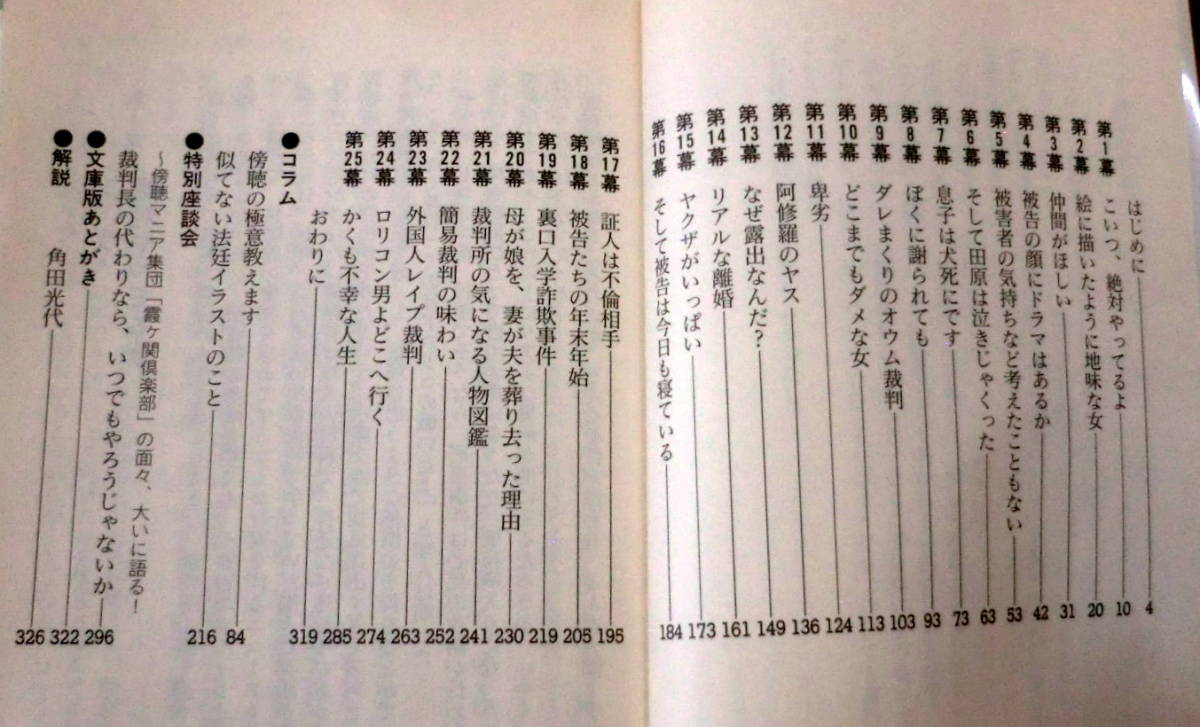 はじめに 4
第1幕 こいつ、絶対やってるよ 10
第2幕 絵に描いたように地味な女 20
第3幕 仲間がほしい 31
第4幕 被告の顔にドラマはあるか 42
第5幕 被害者の気持ちなど考えたこともない 53
第6幕 そして田原は泣きじゃくった 63
第7幕 息子は犬死にです 73
第8幕 ぼくに謝られても 93
第9幕 ダレまくりのオウム裁判 103
第10幕 どこまでもダメな女 113
第11幕 卑劣 124
第12幕 阿修羅のヤス 136
第13幕 なぜ露出なんだ? 149
第14幕 リアルな離婚 161
第15幕 ヤクザがいっぱい 173
第16幕 そして被告は今日も寝ている 184
第17幕 証人は不倫相手 195
第18幕 被告たちの年末年始 205
第19幕 裏口入学詐欺事件 219
第20幕 母が娘を、妻が夫を葬り去った理由 230
第21幕 裁判所の気になる人物図鑑 241
第22幕 簡易裁判の味わい 252
第23幕 外国人レイプ裁判 263
第24幕 ロリコン男よどこへ行く 274
第25幕 かくも不幸な人生 285
おわりに 319
●コラム
傍聴の極意教えます 84
似てない法廷イラストのこと 216
●特別座談会
〜傍聴マニア集団「霞ヶ関倶楽部」の面々、大いに語る!
裁判長の代わりなら、いつでもやろうじゃないか 296
●文庫版あとがき 322
●解説 角田光代 326